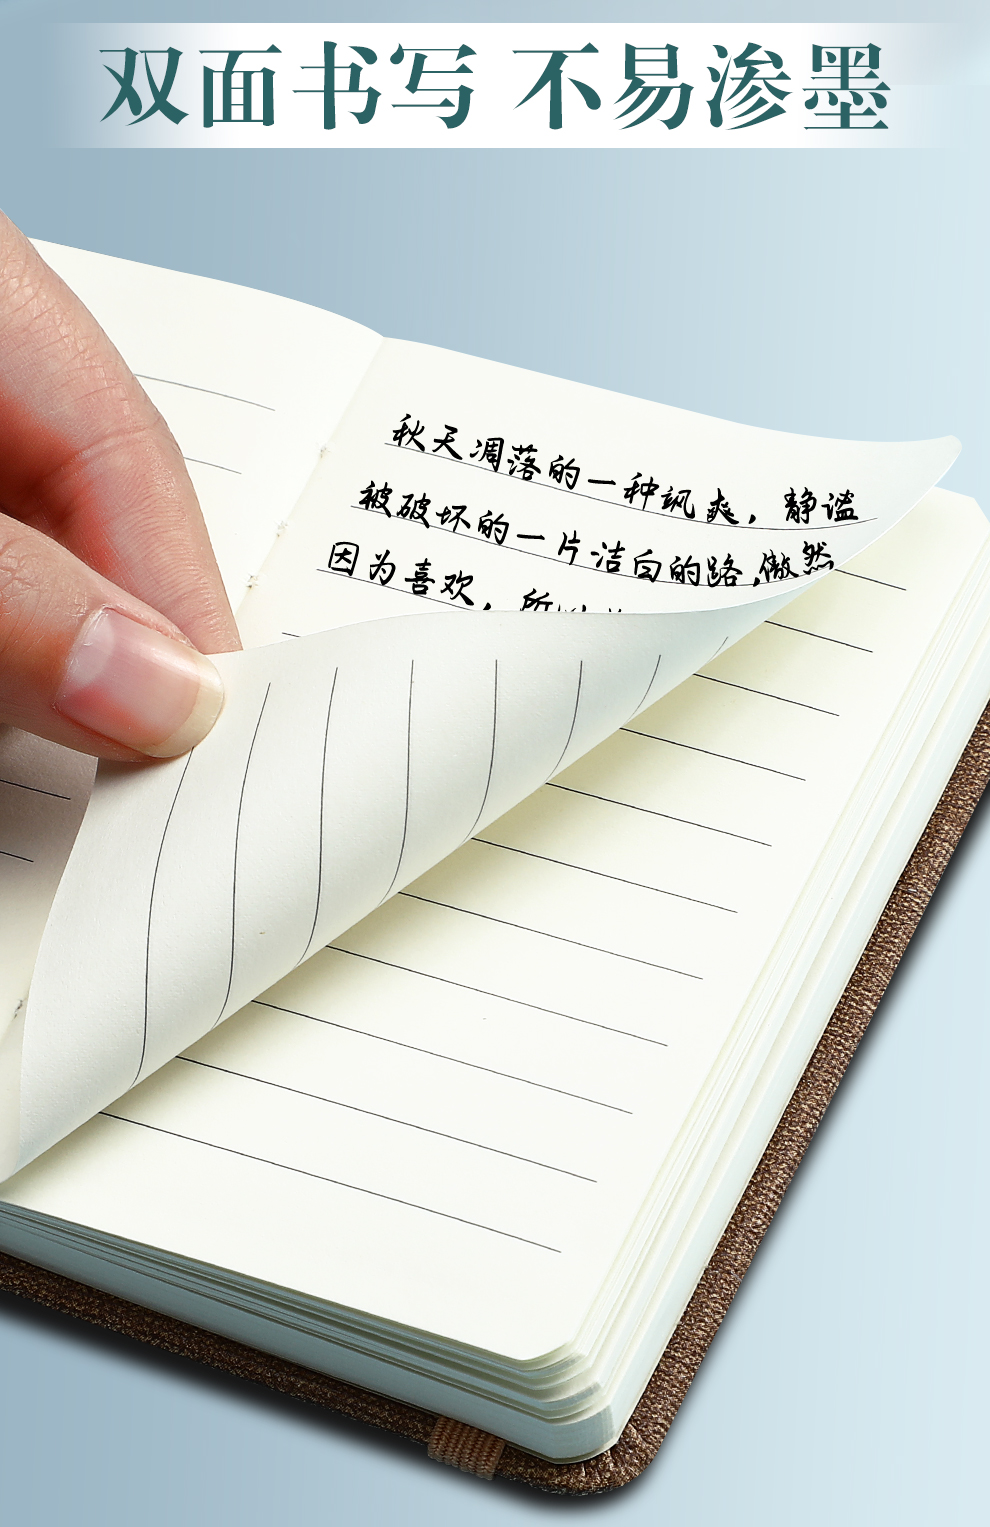 双面书写 不易渗墨
秋天凋落的一种飒爽，静谧
被破坏的一片洁白的路，傲然
因为喜欢，所以